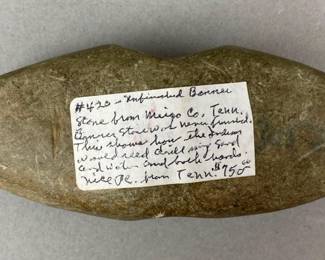 #420 - Unfinished Banner
Stone from Meigs Co, Tenn.
Banner Stone was never finished.
This shows how the Indian
would reed drill using sand
and water and both hands.
Nice Pc. from Tenn. $750.00